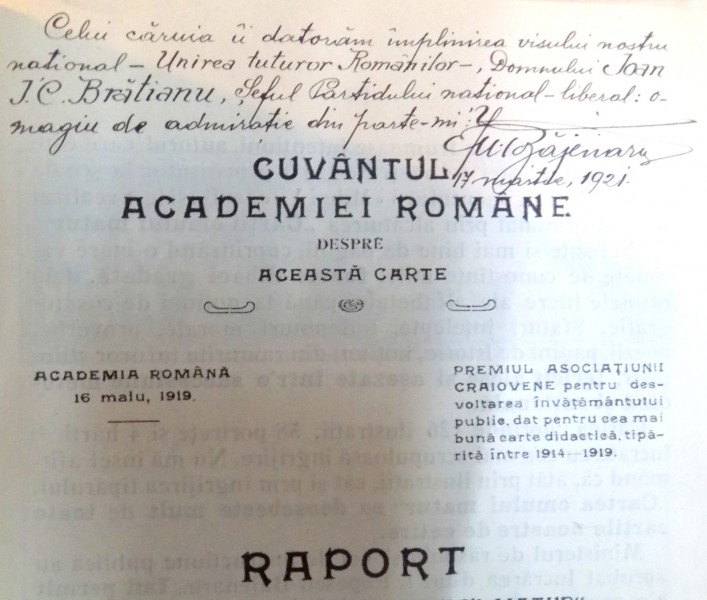 Celui căruia îi datorăm împlinirea visului nostru
național — Unirea tuturor Românilor —, Domnului Ioan
I. C. Brătianu, Șeful Partidului național-liberal: o-
magiu de admirație din parte-mi:
17 martie, 1921.
CUVÂNTUL
ACADEMIEI ROMÂNE
DESPRE
ACEASTĂ CARTE
ACADEMIA ROMÂNĂ
16 maiu, 1919.
PREMIUL ASOCIAȚIUNII
CRAIOVENE pentru des-
voltarea învățământului
public, dat pentru cea mai
bună carte didactică, tipă-
rită între 1914-1919.
RAPORT